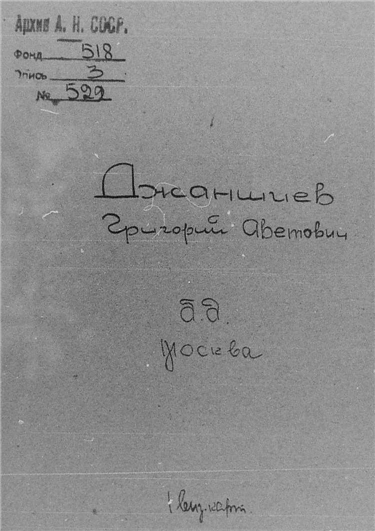 Архив А. Н. СССР.
Фонд 518
Опись 3
№ 529
Джаншиев
Григорий Аветович
б.д.
Москва
1 виз. карт.